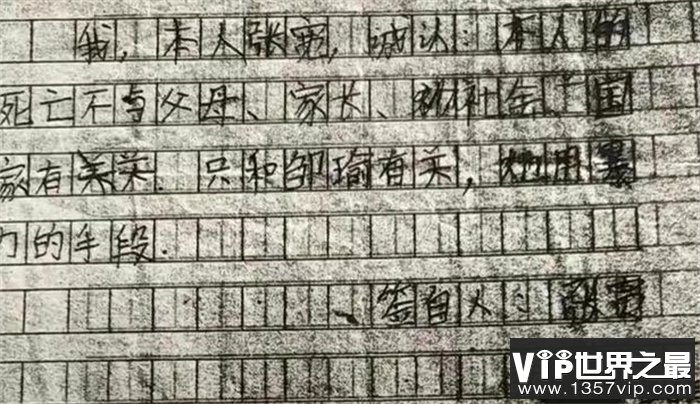 我,本人张宽,诚认:本人的
死亡不与父母、家长、社会、国
家有关. 只和邹瑜有关,她用暴
力的手段.
签自人:张宽
VIP世界之最
www.1357vip.com